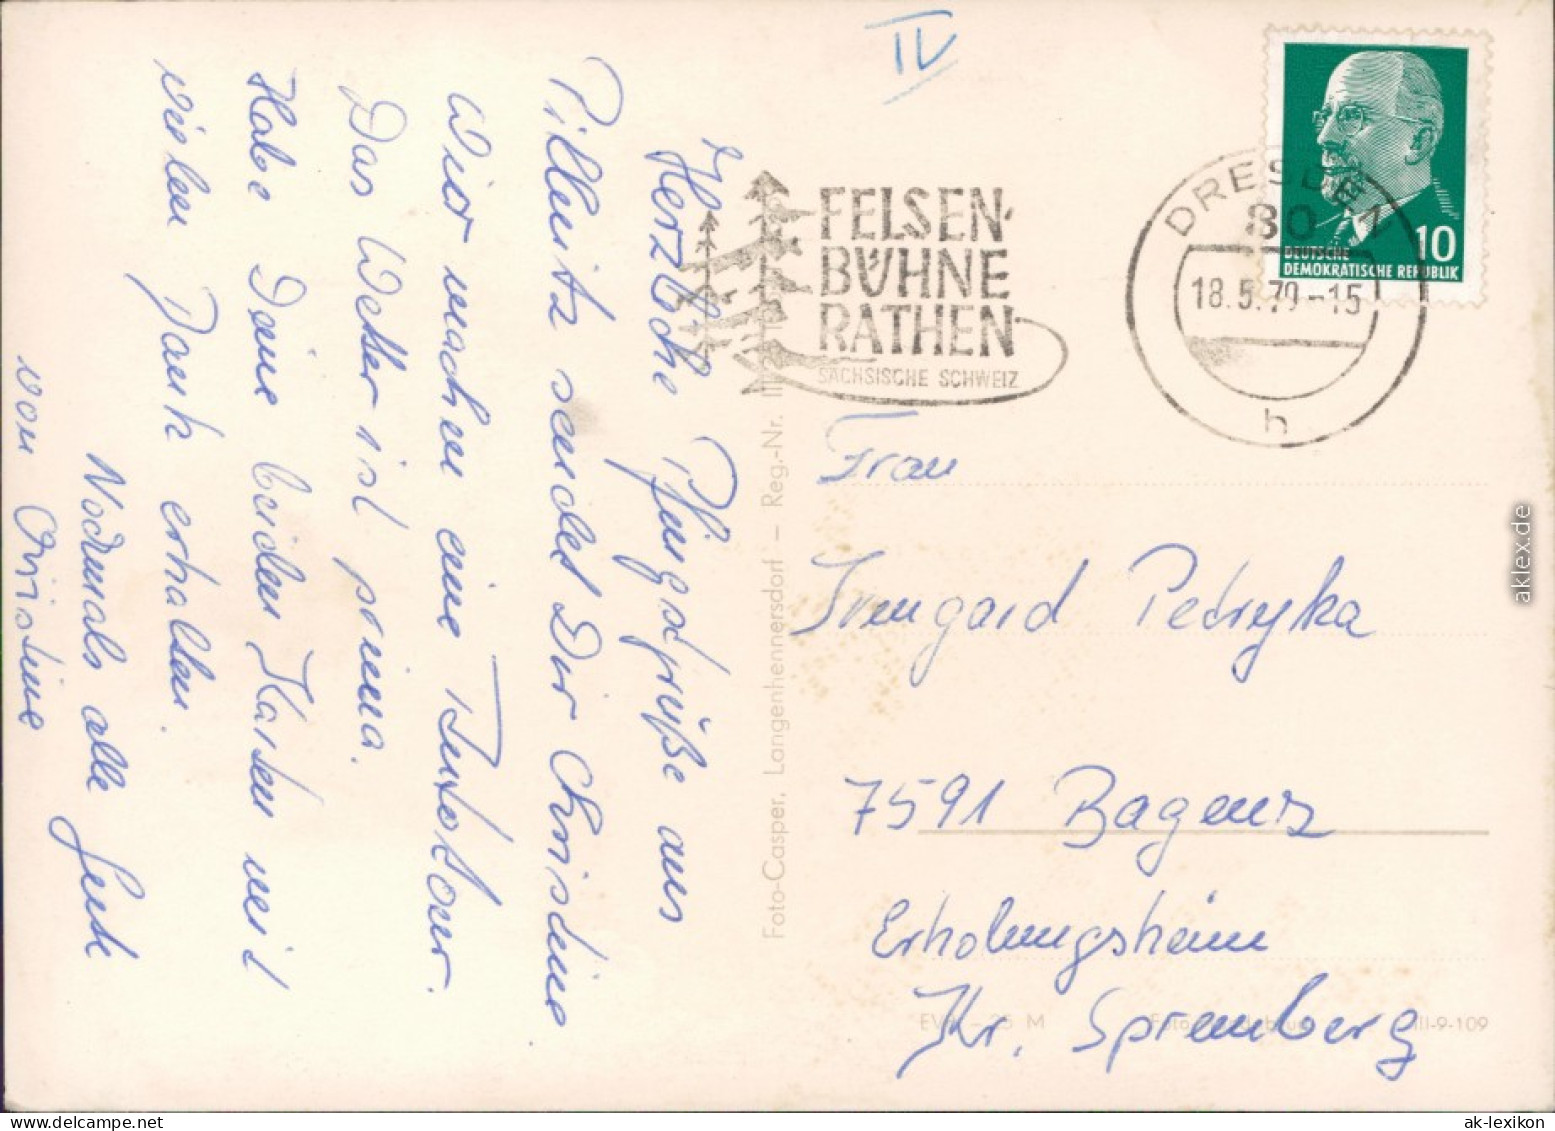 IV
Herzliche Pfingstgrüße aus
Pillnitz sendet Dir Christine
Wir machen eine Tour.
Das Wetter ist prima.
Habe Deine beiden Karten mit
vielen Dank erhalten.
Nochmals alle Gute
von Christine
FELSEN-
BÜHNE
RATHEN
SÄCHSISCHE SCHWEIZ
DRESDEN
80
18.5.70-15
h
10
DEUTSCHE
DEMOKRATISCHE REPUBLIK
Frau
Irmgard Petryka
7591 Bagenz
Erholungsheim
Kr. Spremberg
Foto-Casper, Langenhennersdorf – Reg.-Nr.
25 M
III-9-109
aklex.de
ak-lexikon